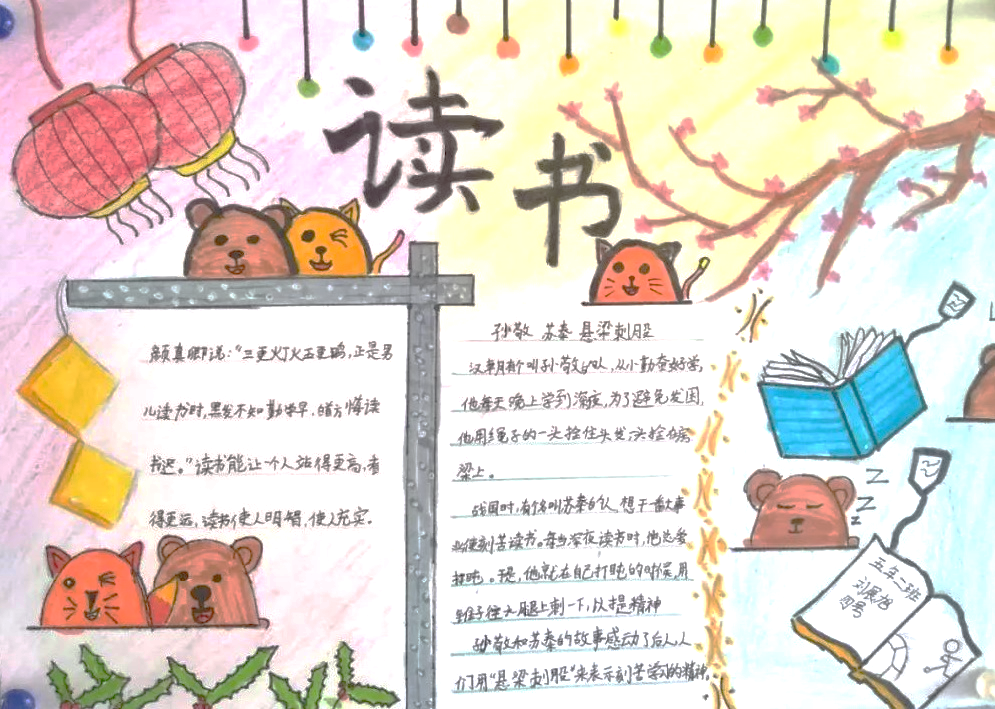 读书
颜真卿说:“三更灯火五更鸡,正是男
儿读书时,黑发不知勤学早,白首方悔读
书迟。”读书能让一个人站得更高,看
得更远,读书使人明智,使人充实。
孙敬 苏秦 悬梁刺股
汉朝有个叫孙敬的人,从小勤奋好学,
他每天晚上学到深夜,为了避免发困,
他用绳子的一头拴住头发,一头拴在房
梁上。
战国时,有个名叫苏秦的人,想干一番大事
业,便刻苦读书。每当深夜读书时,他总爱
打盹。于是,他就在自己打盹的时候,用
锥子往大腿上刺一下,以提精神
孙敬和苏秦的故事感动了后人,人
们用“悬梁刺股”来表示刻苦学习的精神。
Z
Z
Z
五年二班
刘展旭
四号